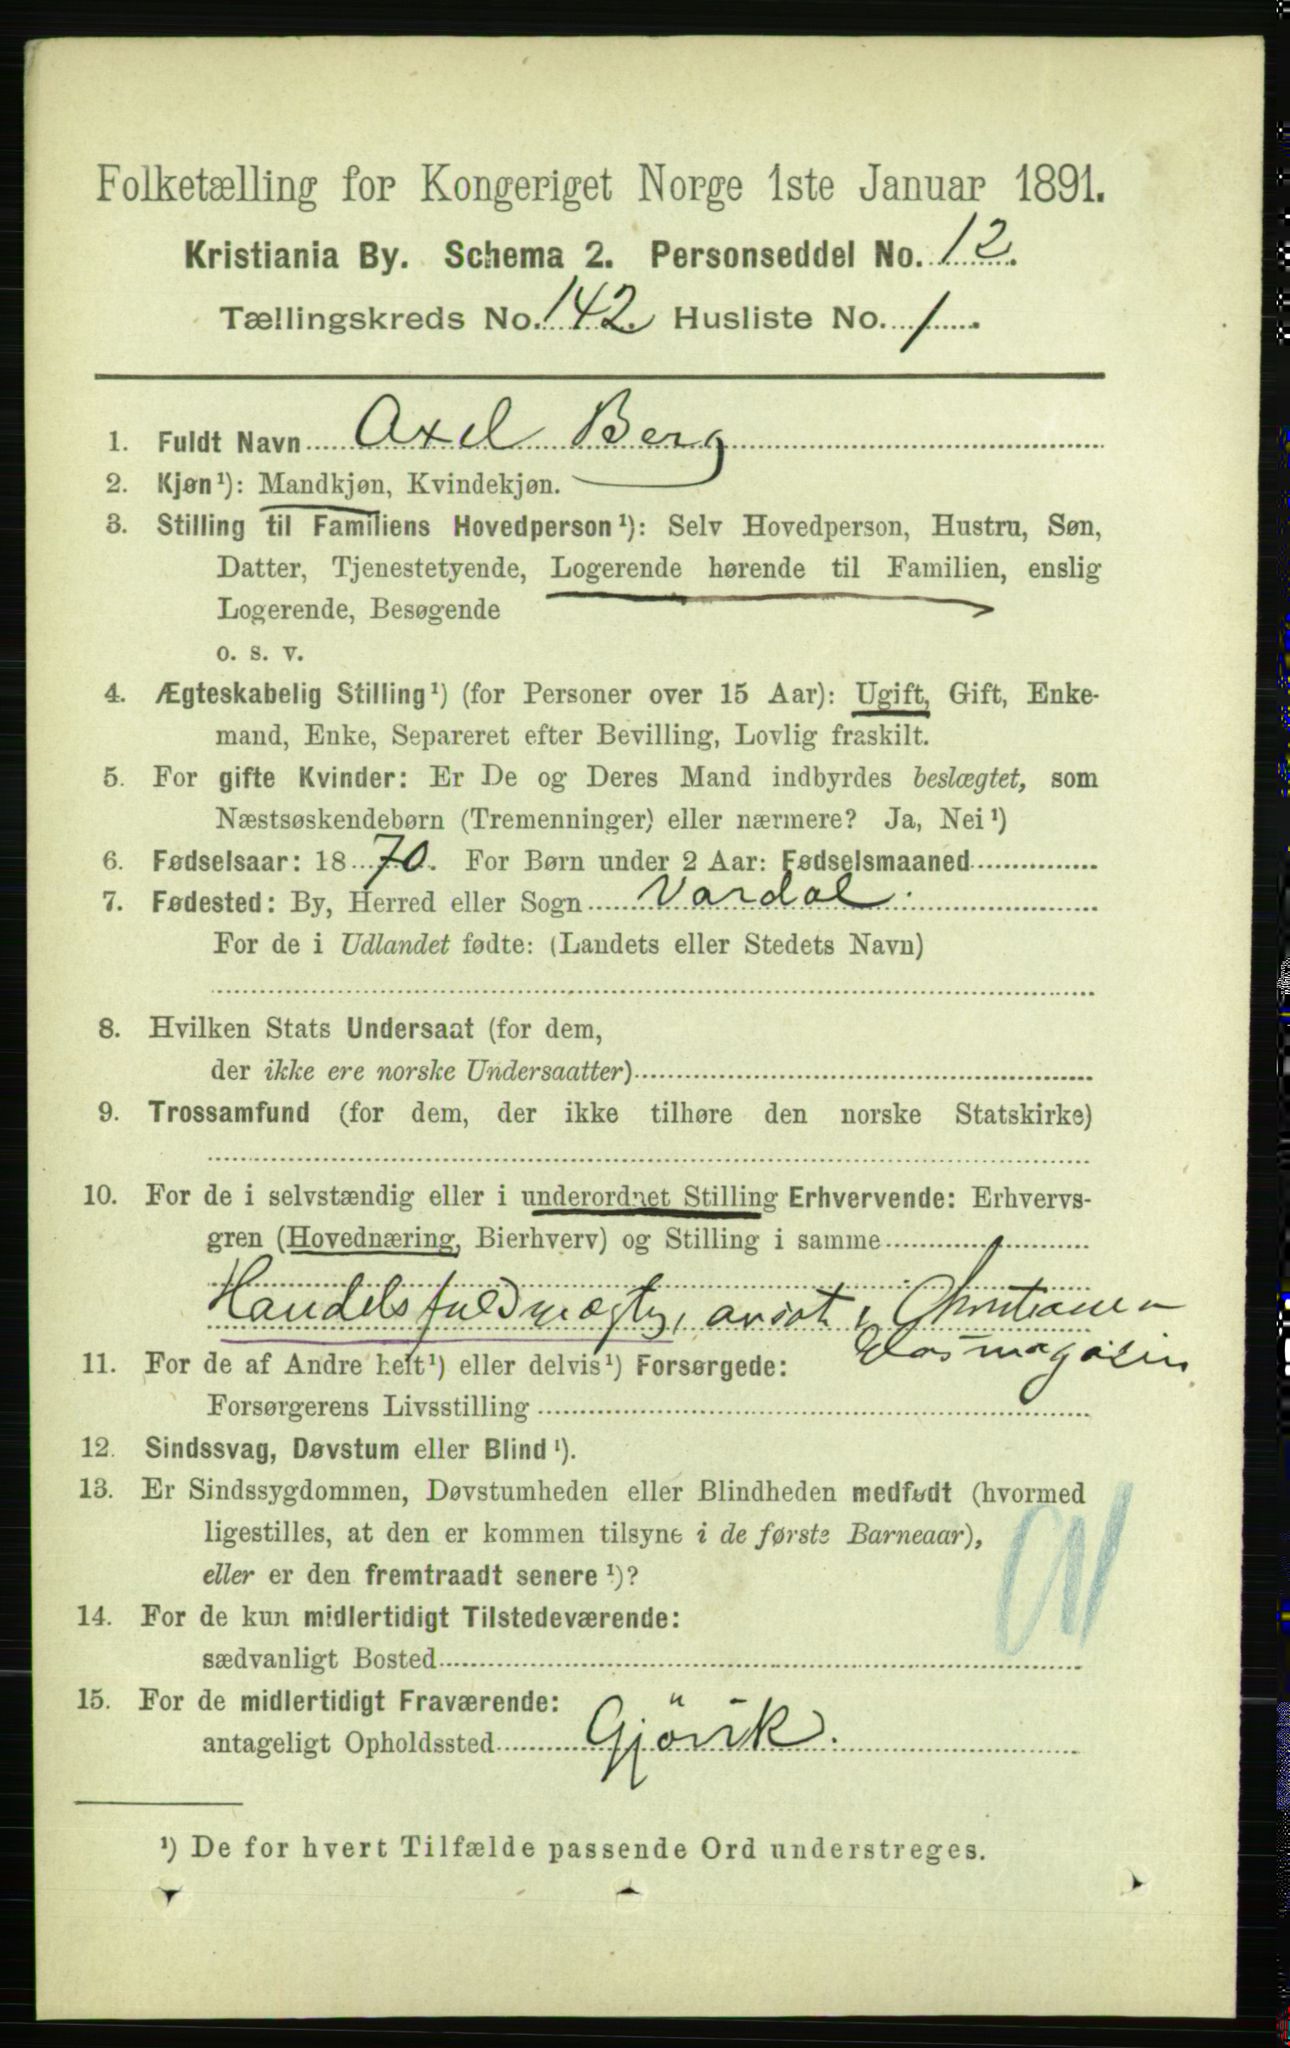 Folketælling for Kongeriget Norge 1ste Januar 1891.
Kristiania By. Schema 2. Personseddel No. 12.
Tællingskreds No. 142. Husliste No. 1.
1. Fuldt Navn Axel Berg
2. Kjøn¹): Mandkjøn, Kvindekjøn.
3. Stilling til Familiens Hovedperson¹): Selv Hovedperson, Hustru, Søn,
Datter, Tjenestetyende, Logerende hørende til Familien, enslig
Logerende, Besøgende
o. s. v.
4. Ægteskabelig Stilling¹) (for Personer over 15 Aar): Ugift, Gift, Enke-
mand, Enke, Separeret efter Bevilling, Lovlig fraskilt.
5. For gifte Kvinder: Er De og Deres Mand indbyrdes beslægtet, som
Næstsøskendebørn (Tremenninger) eller nærmere? Ja, Nei¹)
6. Fødselsaar: 1870. For Børn under 2 Aar: Fødselsmaaned
7. Fødested: By, Herred eller Sogn Vardal.
For de i Udlandet fødte: (Landets eller Stedets Navn)
8. Hvilken Stats Undersaat (for dem,
der ikke ere norske Undersaatter)
9. Trossamfund (for dem, der ikke tilhøre den norske Statskirke)
10. For de i selvstændig eller i underordnet Stilling Erhvervende: Erhvervs-
gren (Hovednæring, Bierhverv) og Stilling i samme
Handelsfuldmægtig, ansat i Christiania
Glasmagasin
11. For de af Andre helt¹) eller delvis¹) Forsørgede:
Forsørgerens Livsstilling
12. Sindssvag, Døvstum eller Blind¹).
13. Er Sindssygdommen, Døvstumheden eller Blindheden medfødt (hvormed
ligestilles, at den er kommen tilsyne i de første Barneaar),
eller er den fremtraadt senere¹)?
14. For de kun midlertidigt Tilstedeværende:
sædvanligt Bosted
15. For de midlertidigt Fraværende:
antageligt Opholdssted Gjövik.
¹) De for hvert Tilfælde passende Ord understreges.